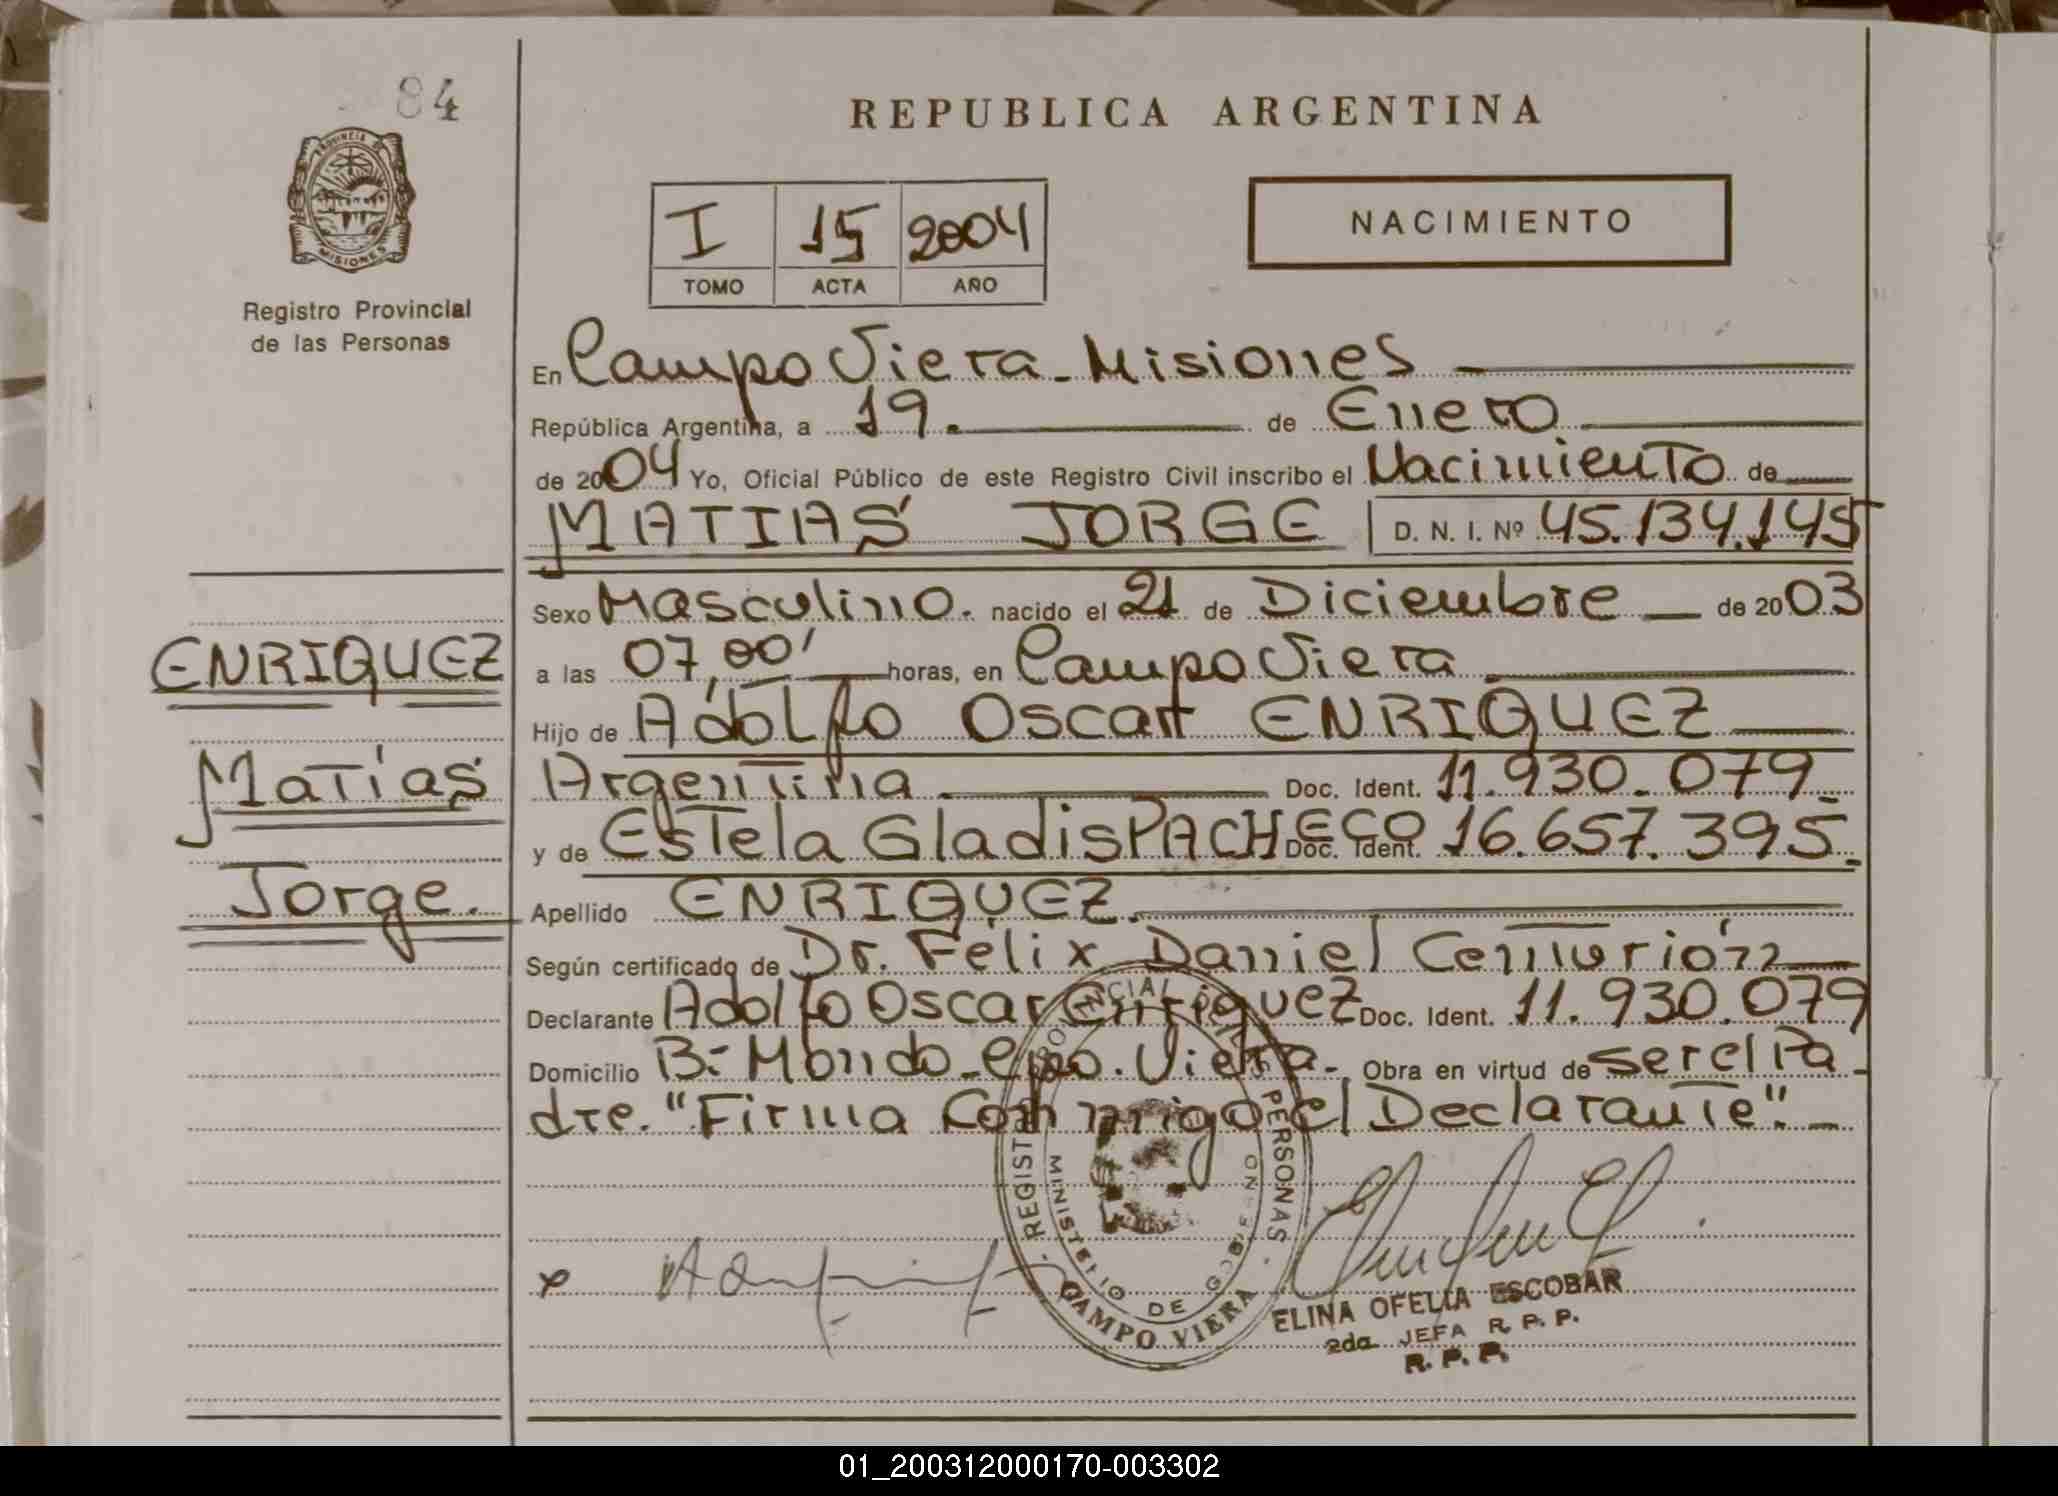 84
PROVINCIA DE
MISIONES
Registro Provincial
de las Personas
REPUBLICA ARGENTINA
I 15 2004
TOMO ACTA AÑO
NACIMIENTO
En Campo Viera - Misiones
República Argentina, a 19. de Enero
de 2004 Yo, Oficial Público de este Registro Civil inscribo el Nacimiento de
MATIAS JORGE D. N. I. Nº 45.134.145
Sexo Masculino. nacido el 21 de Diciembre de 2003
a las 07,00' horas, en Campo Viera
Hijo de Adolfo Oscar ENRIQUEZ
Argentina Doc. Ident. 11.930.079
y de Estela Gladis PACHECO Doc. Ident. 16.657.395.
Apellido ENRIQUEZ.
Según certificado de Dr. Félix Daniel Centurión
Declarante Adolfo Oscar Enriquez Doc. Ident. 11.930.079
Domicilio B: Mondo - Cpo. Viera - Obra en virtud de ser el Pa-
dre. "Firma Conmigo el Declarante".-
ENRIQUEZ
Matías
Jorge.
REGISTRO PROVINCIAL DE LAS PERSONAS
MINISTERIO DE GOBIERNO
CAMPO VIERA
x
ELINA OFELIA ESCOBAR
2da JEFA R. P. P.
R. P. P.
01_200312000170-003302